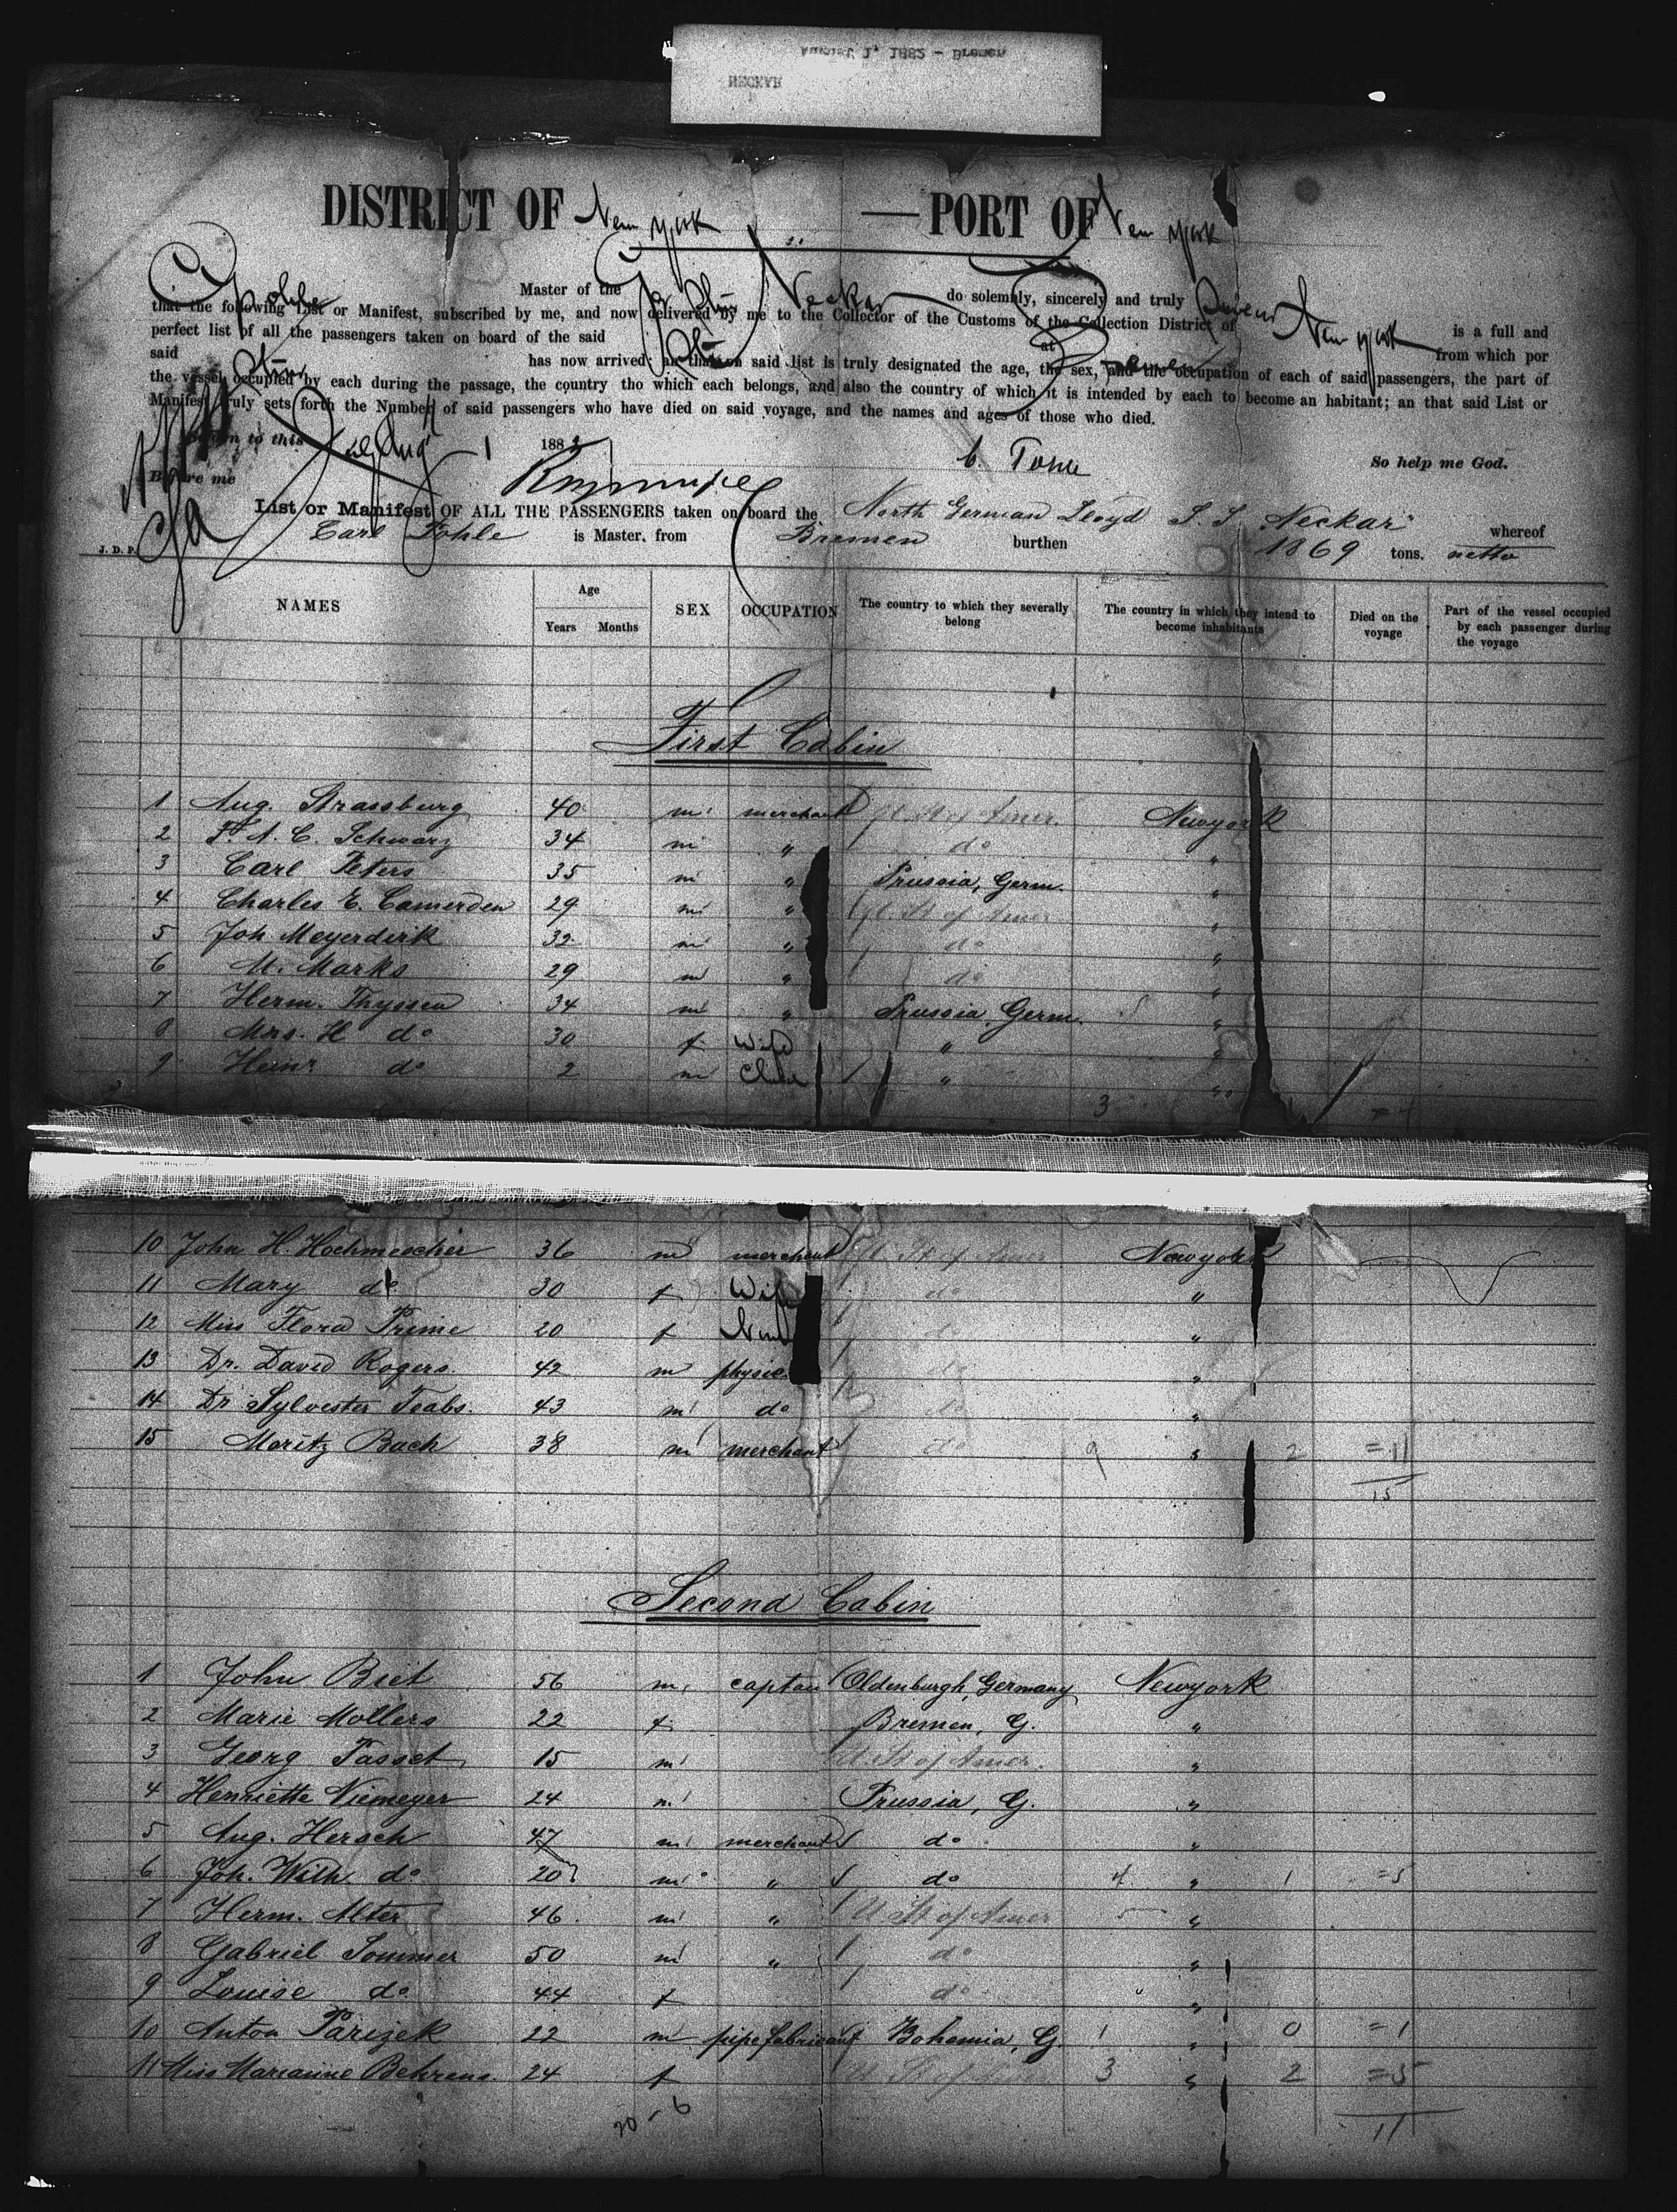 August 1, 1882 - Bremen
NECKAR
DISTRICT OF New York — PORT OF New York
Master of the Neckar do solemnly, sincerely and truly
that the following List or Manifest, subscribed by me, and now delivered by me to the Collector of the Customs of the Collection District of New York is a full and
perfect list of all the passengers taken on board of the said at from which por
said has now arrived: an that on said list is truly designated the age, the sex, and the occupation of each of said passengers, the part of
the vessel occupied by each during the passage, the country tho which each belongs, and also the country of which it is intended by each to become an habitant; an that said List or
Manifest truly sets forth the Number of said passengers who have died on said voyage, and the names and ages of those who died.
Sworn to this Aug 1 1882 So help me God.
Before me
List or Manifest OF ALL THE PASSENGERS taken on board the North German Lloyd S. S. Neckar whereof
Carl Pohle is Master, from Bremen burthen 1869 tons. netto
J. D. P.
NAMES Age Years Months SEX OCCUPATION The country to which they severally belong The country in which they intend to become inhabitants Died on the voyage Part of the vessel occupied by each passenger during the voyage
First Cabin
1 Aug. Strassburg 40 m merchant U. St of Amer. Newyork
2 F. A. C. Schwarz 34 m " do "
3 Carl Peters 35 m " Prussia, Germ. "
4 Charles E. Camerden 29 m " U. St of Amer "
5 Joh Meyerdirk 32 m " do "
6 M. Marks 29 m " do "
7 Herm. Thyssen 34 m " Prussia, Germ. "
8 Mrs. H do 30 f Wife " "
9 Heinr do 2 m Child " "
3
10 John H. Hochmescher 36 m merchant U. St of Amer Newyork
11 Mary do 30 f Wife do "
12 Miss Flora Prime 20 f do "
13 Dr. David Rogers. 42 m physic. do "
14 Dr Sylvester Teabs. 43 m do do "
15 Moritz Bach 38 m merchant do 9 " 2 =11
15
Second Cabin
1 John Biet 56 m captain Oldenburgh, Germany Newyork
2 Marie Mollers 22 f Bremen, G. "
3 Georg Tasset 15 m U. St of Amer. "
4 Henriette Niemeyer 24 m Prussia, G. "
5 Aug. Hersch 47 m merchant do "
6 Joh. Wilh. do 20 m " do 4 " 1 =5
7 Herm. Alter 46 m " U. St of Amer "
8 Gabriel Sommer 50 m " do "
9 Louise do 44 f do "
10 Anton Parizek 22 m pipe fabricant Bohemia, G. 1 " 0 =1
11 Miss Marianne Behrens. 24 f U. St of Amer 3 " 2 =5
20 - 6 11